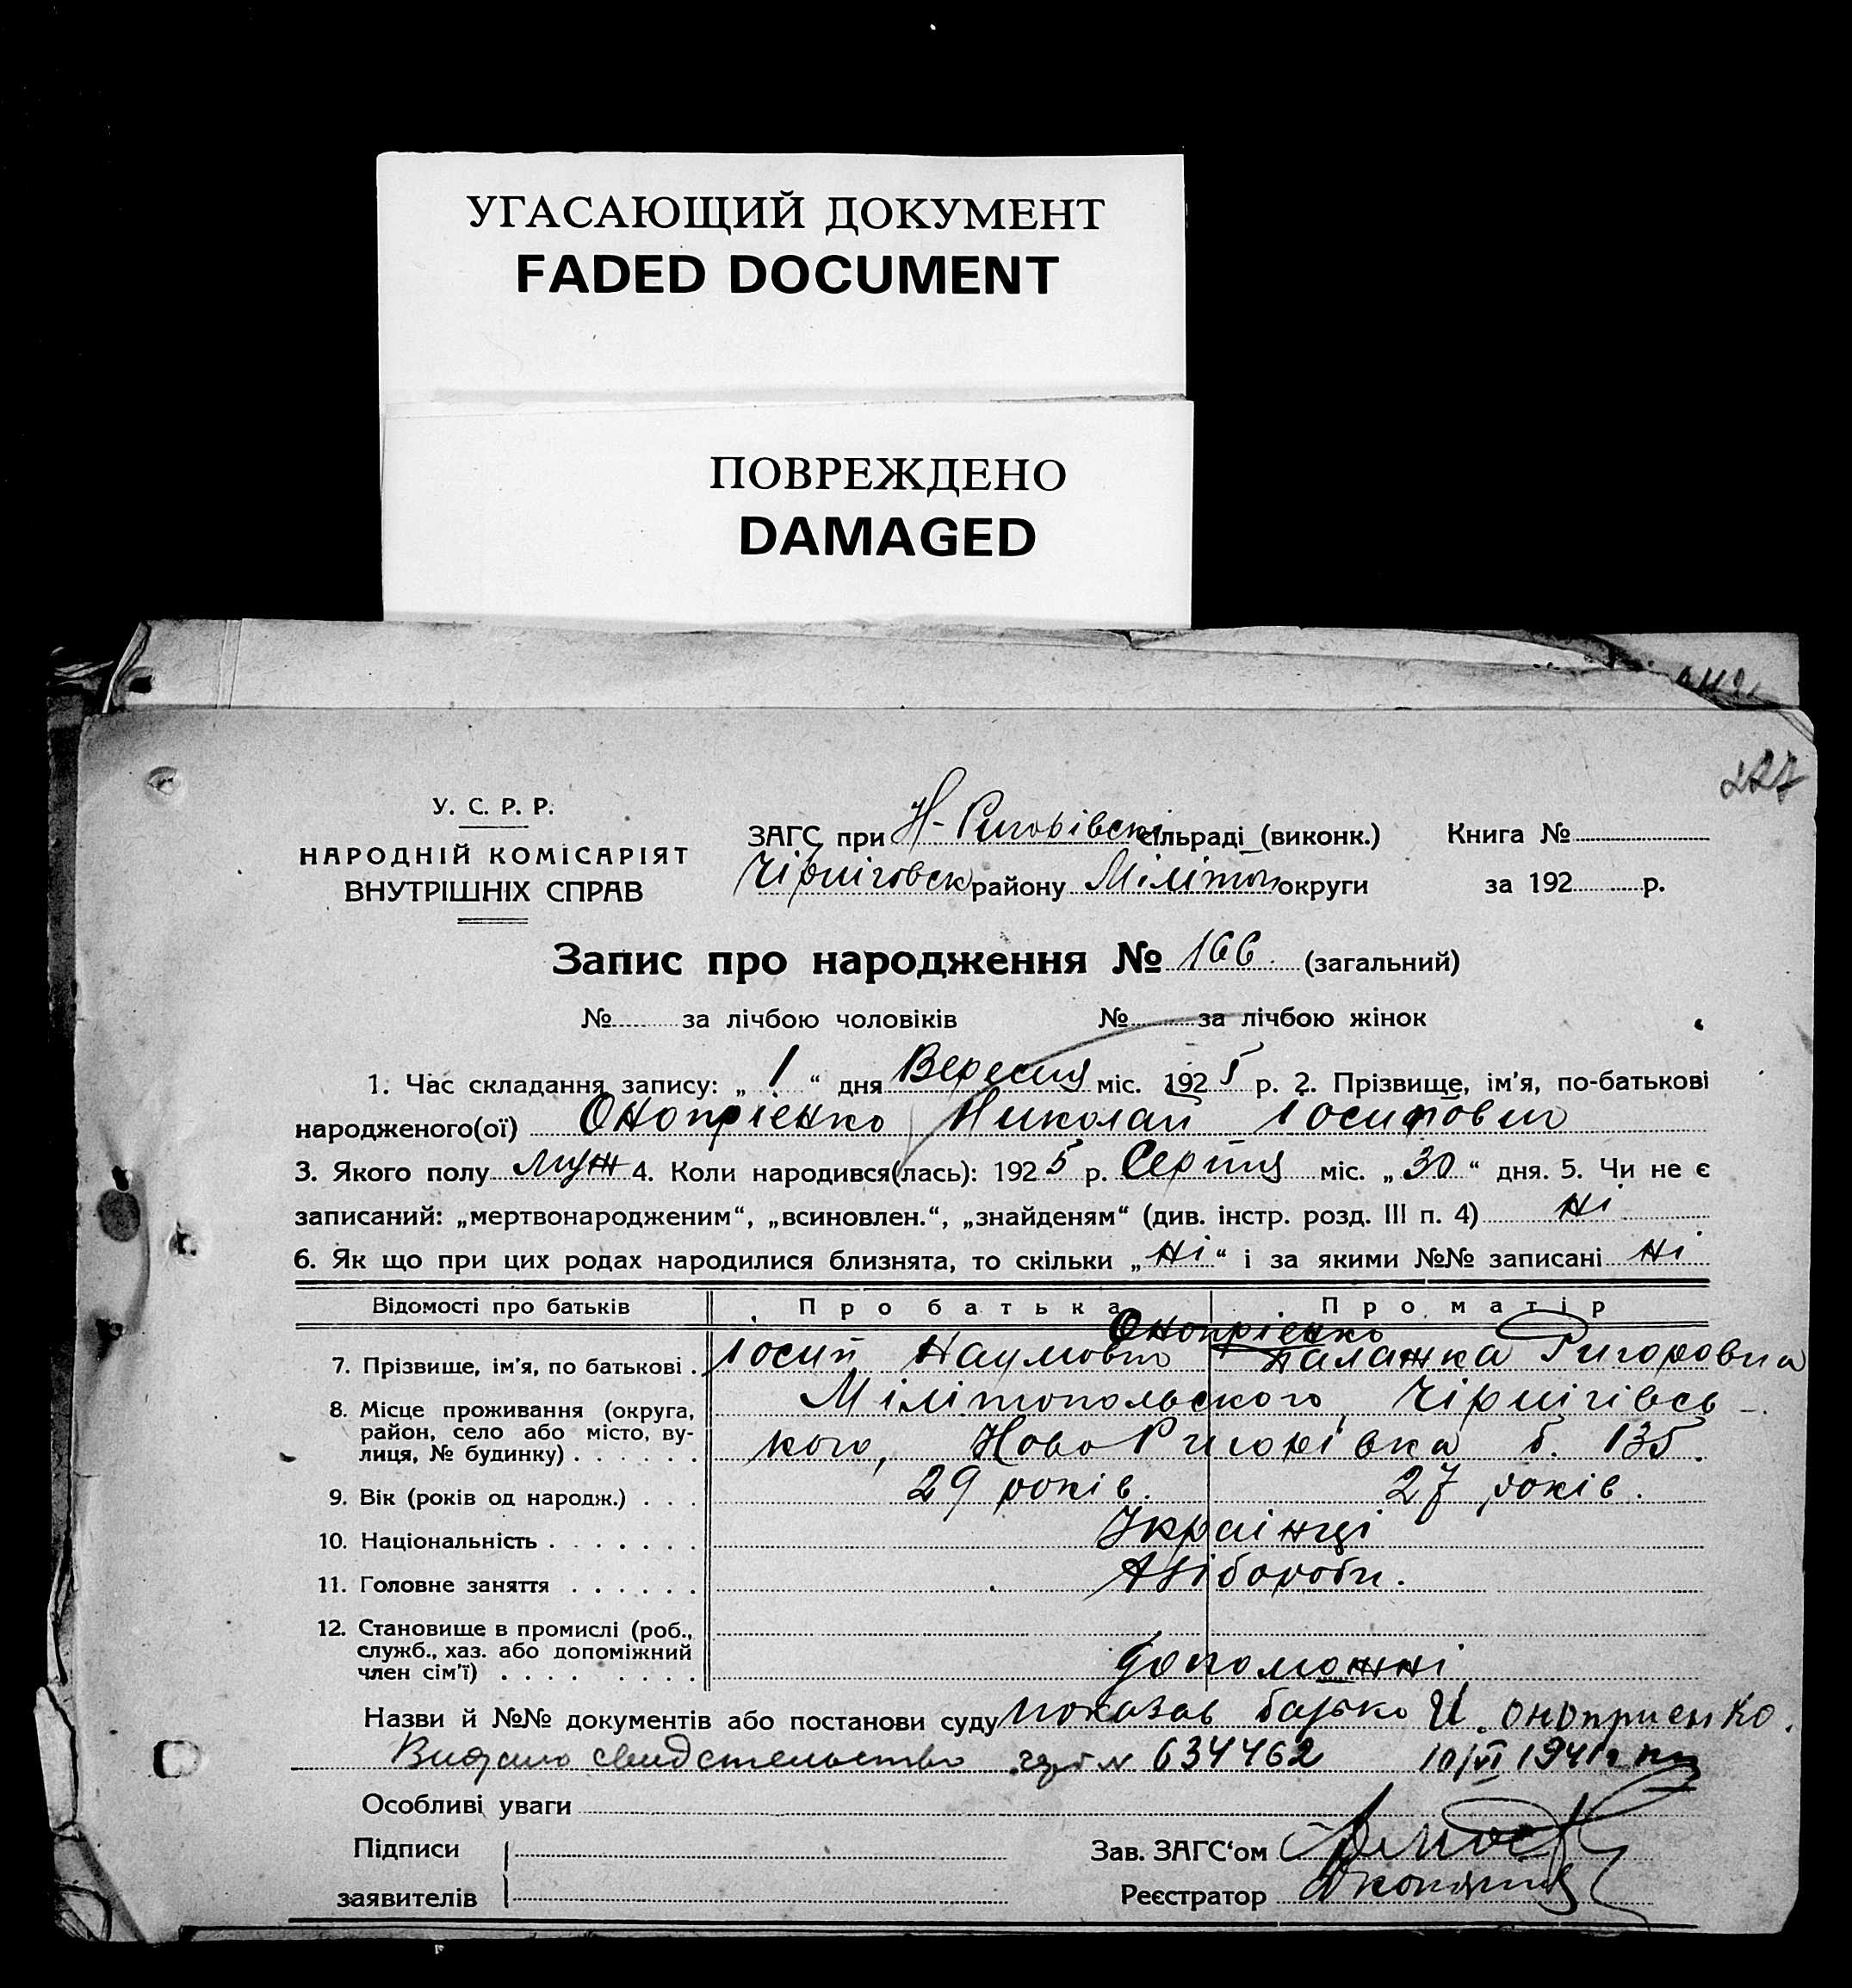 УГАСАЮЩИЙ ДОКУМЕНТ
FADED DOCUMENT
ПОВРЕЖДЕНО
DAMAGED
227
У. С. Р. Р.
НАРОДНІЙ КОМІСАРІЯТ
ВНУТРІШНІХ СПРАВ
ЗАГС при Н-Ригорівскі сільраді (виконк.) Книга №
Чірніговск району Міліτοп округи за 192 р.
Запис про народження № 166. (загальний)
№ за лічбою чоловіків № за лічбою жінок
1. Час складання запису: „ 1 “ дня Вересня міс. 1925 р. 2. Прізвище, ім'я, по-батькові
народженого(ої) Онопрієнко Николай Іосипович
3. Якого полу муж 4. Коли народився(лась): 1925 р. Серпня міс. „ 30 “ дня. 5. Чи не є
записаний: „мертвонародженим“, „всиновлен.“, „знайденям“ (див. інстр. розд. III п. 4) ні
6. Як що при цих родах народилися близнята, то скільки „ ні “ і за якими №№ записані ні
Відомості про батьків Про батька Про матір
Онопрієнко
7. Прізвище, ім'я, по батькові . Іосип Наумович Палажка Ригоровна
8. Місце проживання (округа, Мілітопольского, Чірнігівсь-
район, село або місто, ву-
лиця, № будинку) . . . . . . кого, Ново Ригорівка б. 135.
9. Вік (років од народж.) . . . 29 років. 27 років.
10. Національність . . . . . . . Українці
11. Головне заняття . . . . . . хлібороби.
12. Становище в промислі (роб.,
служб., хаз. або допоміжний
член сім'ї) . . . . . . . . допоможні
Назви й №№ документів або постанови суду показав батько И. оноприенко.
Видано свидетельство № 634462 10/VI 1941г
Особливі уваги
Підписи
заявителів
Зав. ЗАГС‘ом
Реєстратор